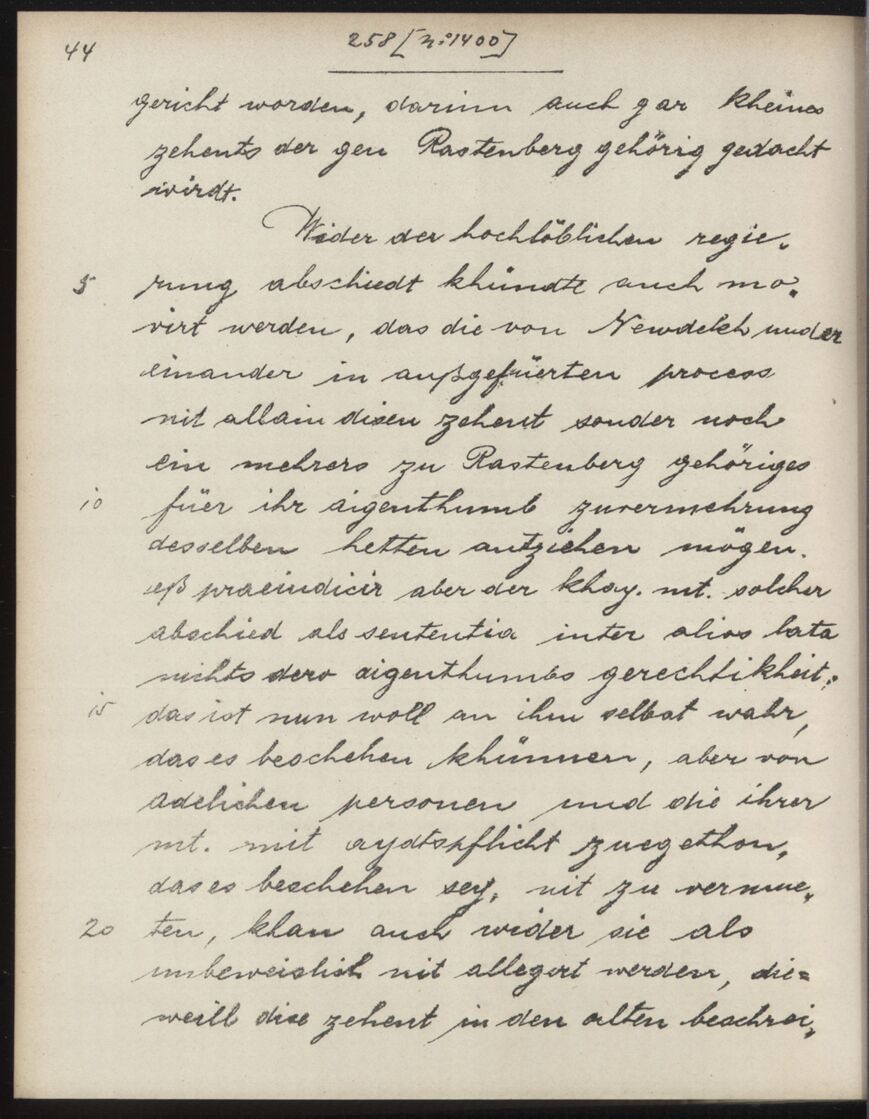 44
258 [N:o 1400]
gericht worden, darinn auch gar kheines
zehents der gen Rastenberg gehörig gedacht
wirdt.
Wider der hochlöblichen regie„
5 rung abschiedt khündte auch mo„
virt werden, das die von Newdekh under
einander in außgefüerten process
nit allain disen zehent sonder noch
ein mehrers zu Rastenberg gehöriges
10 füer ihr aigenthumb zuvermehrung
desselben hetten anziehen mögen.
eß praeiudicir aber der khay. mt. solcher
abschied als sententia inter alios lata
nichts dero aigenthumbs gerechtikheit;
15 das ist nun woll an ihm selbst wahr,
das es beschehen khünnen, aber von
adelichen personen und die ihrer
mt. mit aydtspflicht zuegethon,
das es beschehen sey, nit zu vermue„
20 ten, khan auch wider sie als
unbeweislich nit allegirt werden, die=
weill dise zehent in den alten beschrei„